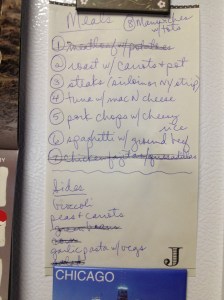 Meals
① meatloaf w/ potatoes
② roast w/ carrots + pot
③ steaks (sirloin or NY strip)
④ tuna w/ mac N cheese
⑤ pork chops w/ cheesy
rice
⑥ spaghetti w/ ground beef
⑦ chicken
Sides
broccoli
peas + carrots
green beans
garlic pasta w/ vegs
salad
J
CHICAGO